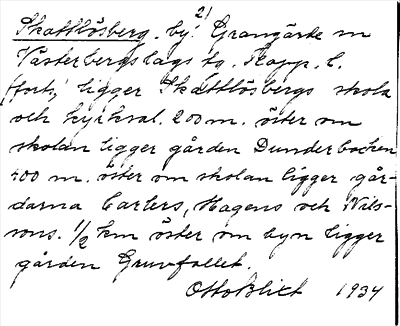 Skattlösberg. by. 2) Grangärde sn
Västerbergslags tg. Kopp. l.
(forts, ligger Skattlösbergs skola
och kyrksal. 200 m. öster om
skolan ligger gården Dunderbacken
400 m. öster om skolan ligger går-
darna Carlers, Hagens och Nils-
sons. 1/2 km öster om byn ligger
gården Gruvfallet.
Otto Blixt 1934